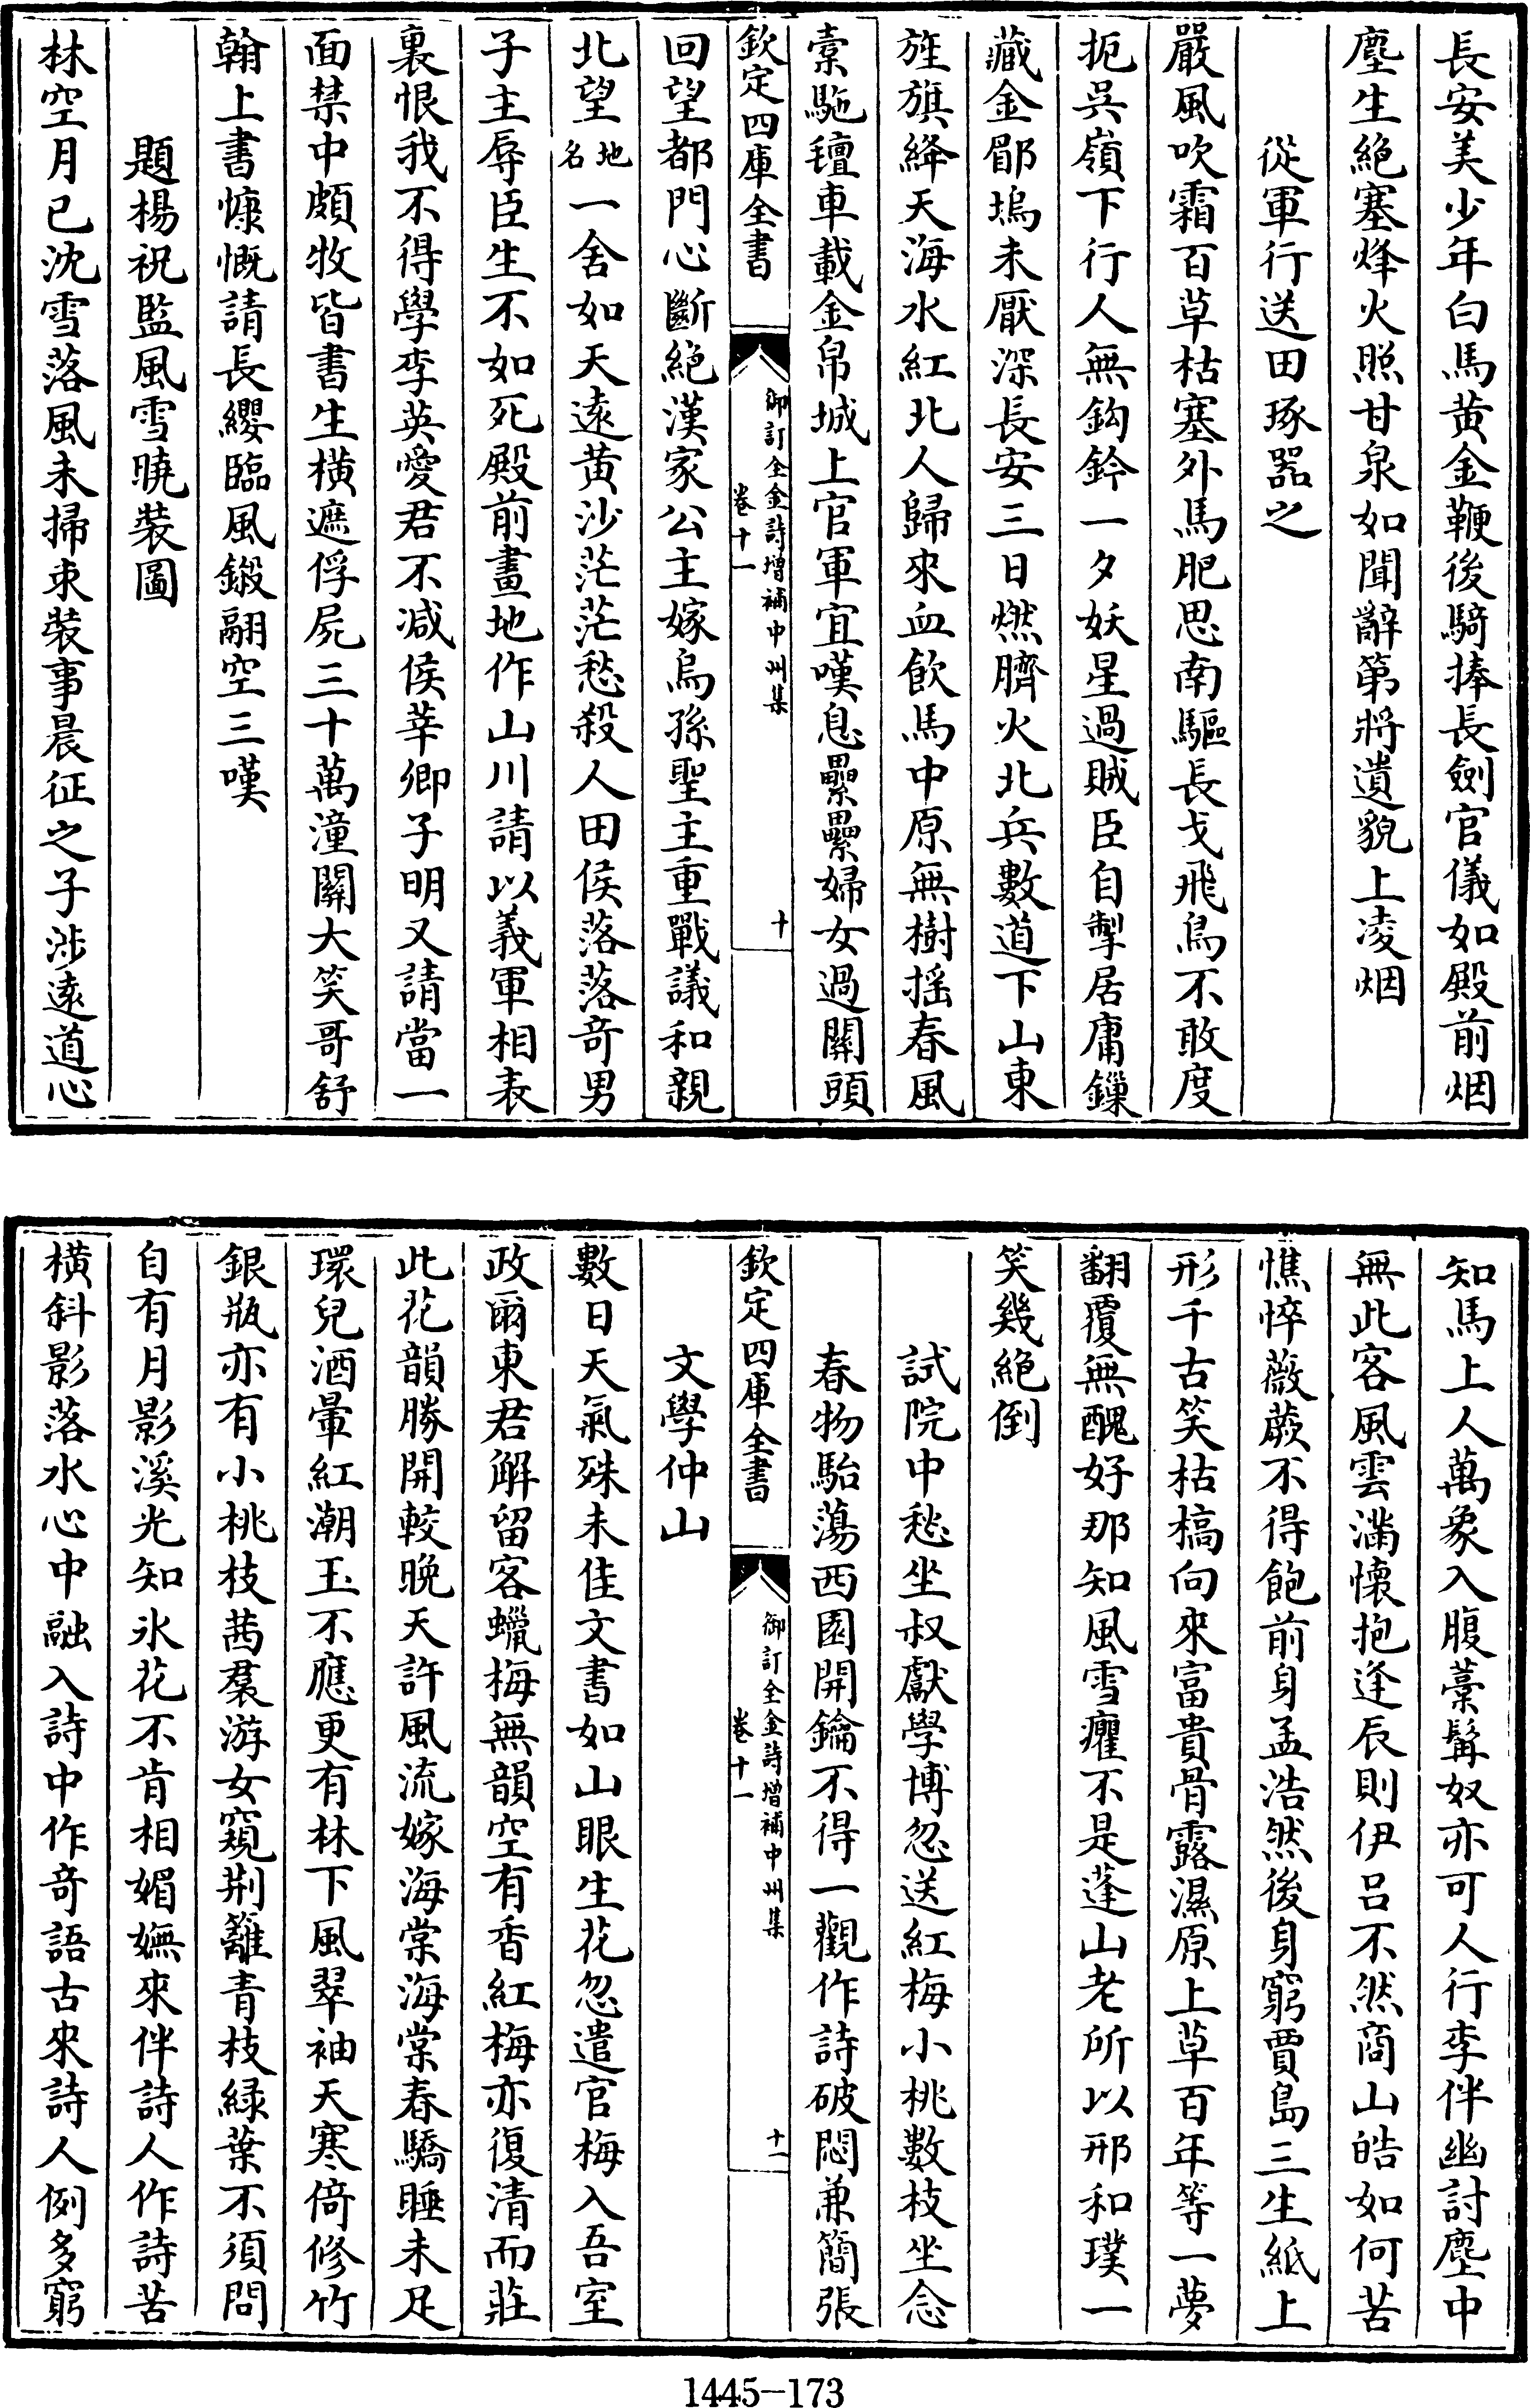 長安美少年白馬黄金鞭後騎捧長劍官儀如殿前烟
塵生絶塞烽火照甘泉如聞辭第將遺貌上凌烟
從軍行送田琢器之
嚴風吹霜百草枯塞外馬肥思南驅長戈飛鳥不敢度
扼呉嶺下行人無鈎鈐一夕妖星過賊臣自掣居庸鏁
藏金郿塢未厭深長安三日燃臍火北兵數道下山東
旌旗絳天海水紅北人歸來血飲馬中原無樹揺春風
橐駞氊車載金帛城上官軍宜嘆息纍纍婦女過關頭
欽定四庫全書
御訂全金詩增補中州集
卷十一
十
回望都門心斷絶漢家公主嫁烏孫聖主重戰議和親
北望地名一舍如天遠黄沙茫茫愁殺人田侯落落竒男
子主辱臣生不如死殿前畫地作山川請以義軍相表
裏恨我不得學李英愛君不减侯莘卿子明又請當一
面禁中頗牧皆書生横遮俘屍三十萬潼關大笑哥舒
翰上書慷慨請長纓臨風鎩翮空三嘆
題楊祝監風雪曉裝圖
林空月已沈雪落風未掃束裝事晨征之子涉遠道心
知馬上人萬象入腹藁髯奴亦可人行李伴幽討塵中
無此客風雲滿懐抱逢辰則伊吕不然商山皓如何苦
憔悴薇蕨不得飽前身孟浩然後身窮賈島三生紙上
形千古笑枯槁向來富貴骨露濕原上草百年等一夢
翻覆無醜好那知風雪癯不是蓬山老所以邢和璞一
笑幾絶倒
試院中愁坐叔獻學博忽送紅梅小桃數枝坐念
春物駘蕩西園開鑰不得一觀作詩破悶兼簡張
欽定四庫全書
御訂全金詩增補中州集
卷十一
十一
文學仲山
數日天氣殊未佳文書如山眼生花忽遣官梅入吾室
政爾東君解留客蠟梅無韻空有香紅梅亦復清而莊
此花韻勝開較晚天許風流嫁海棠海棠春驕睡未足
環兒酒暈紅潮玉不應更有林下風翠袖天寒倚修竹
銀瓶亦有小桃枝茜裠游女窺荆籬青枝緑葉不須問
自有月影溪光知氷花不肯相媚嫵來伴詩人作詩苦
横斜影落水心中融入詩中作竒語古來詩人例多窮
1445-173